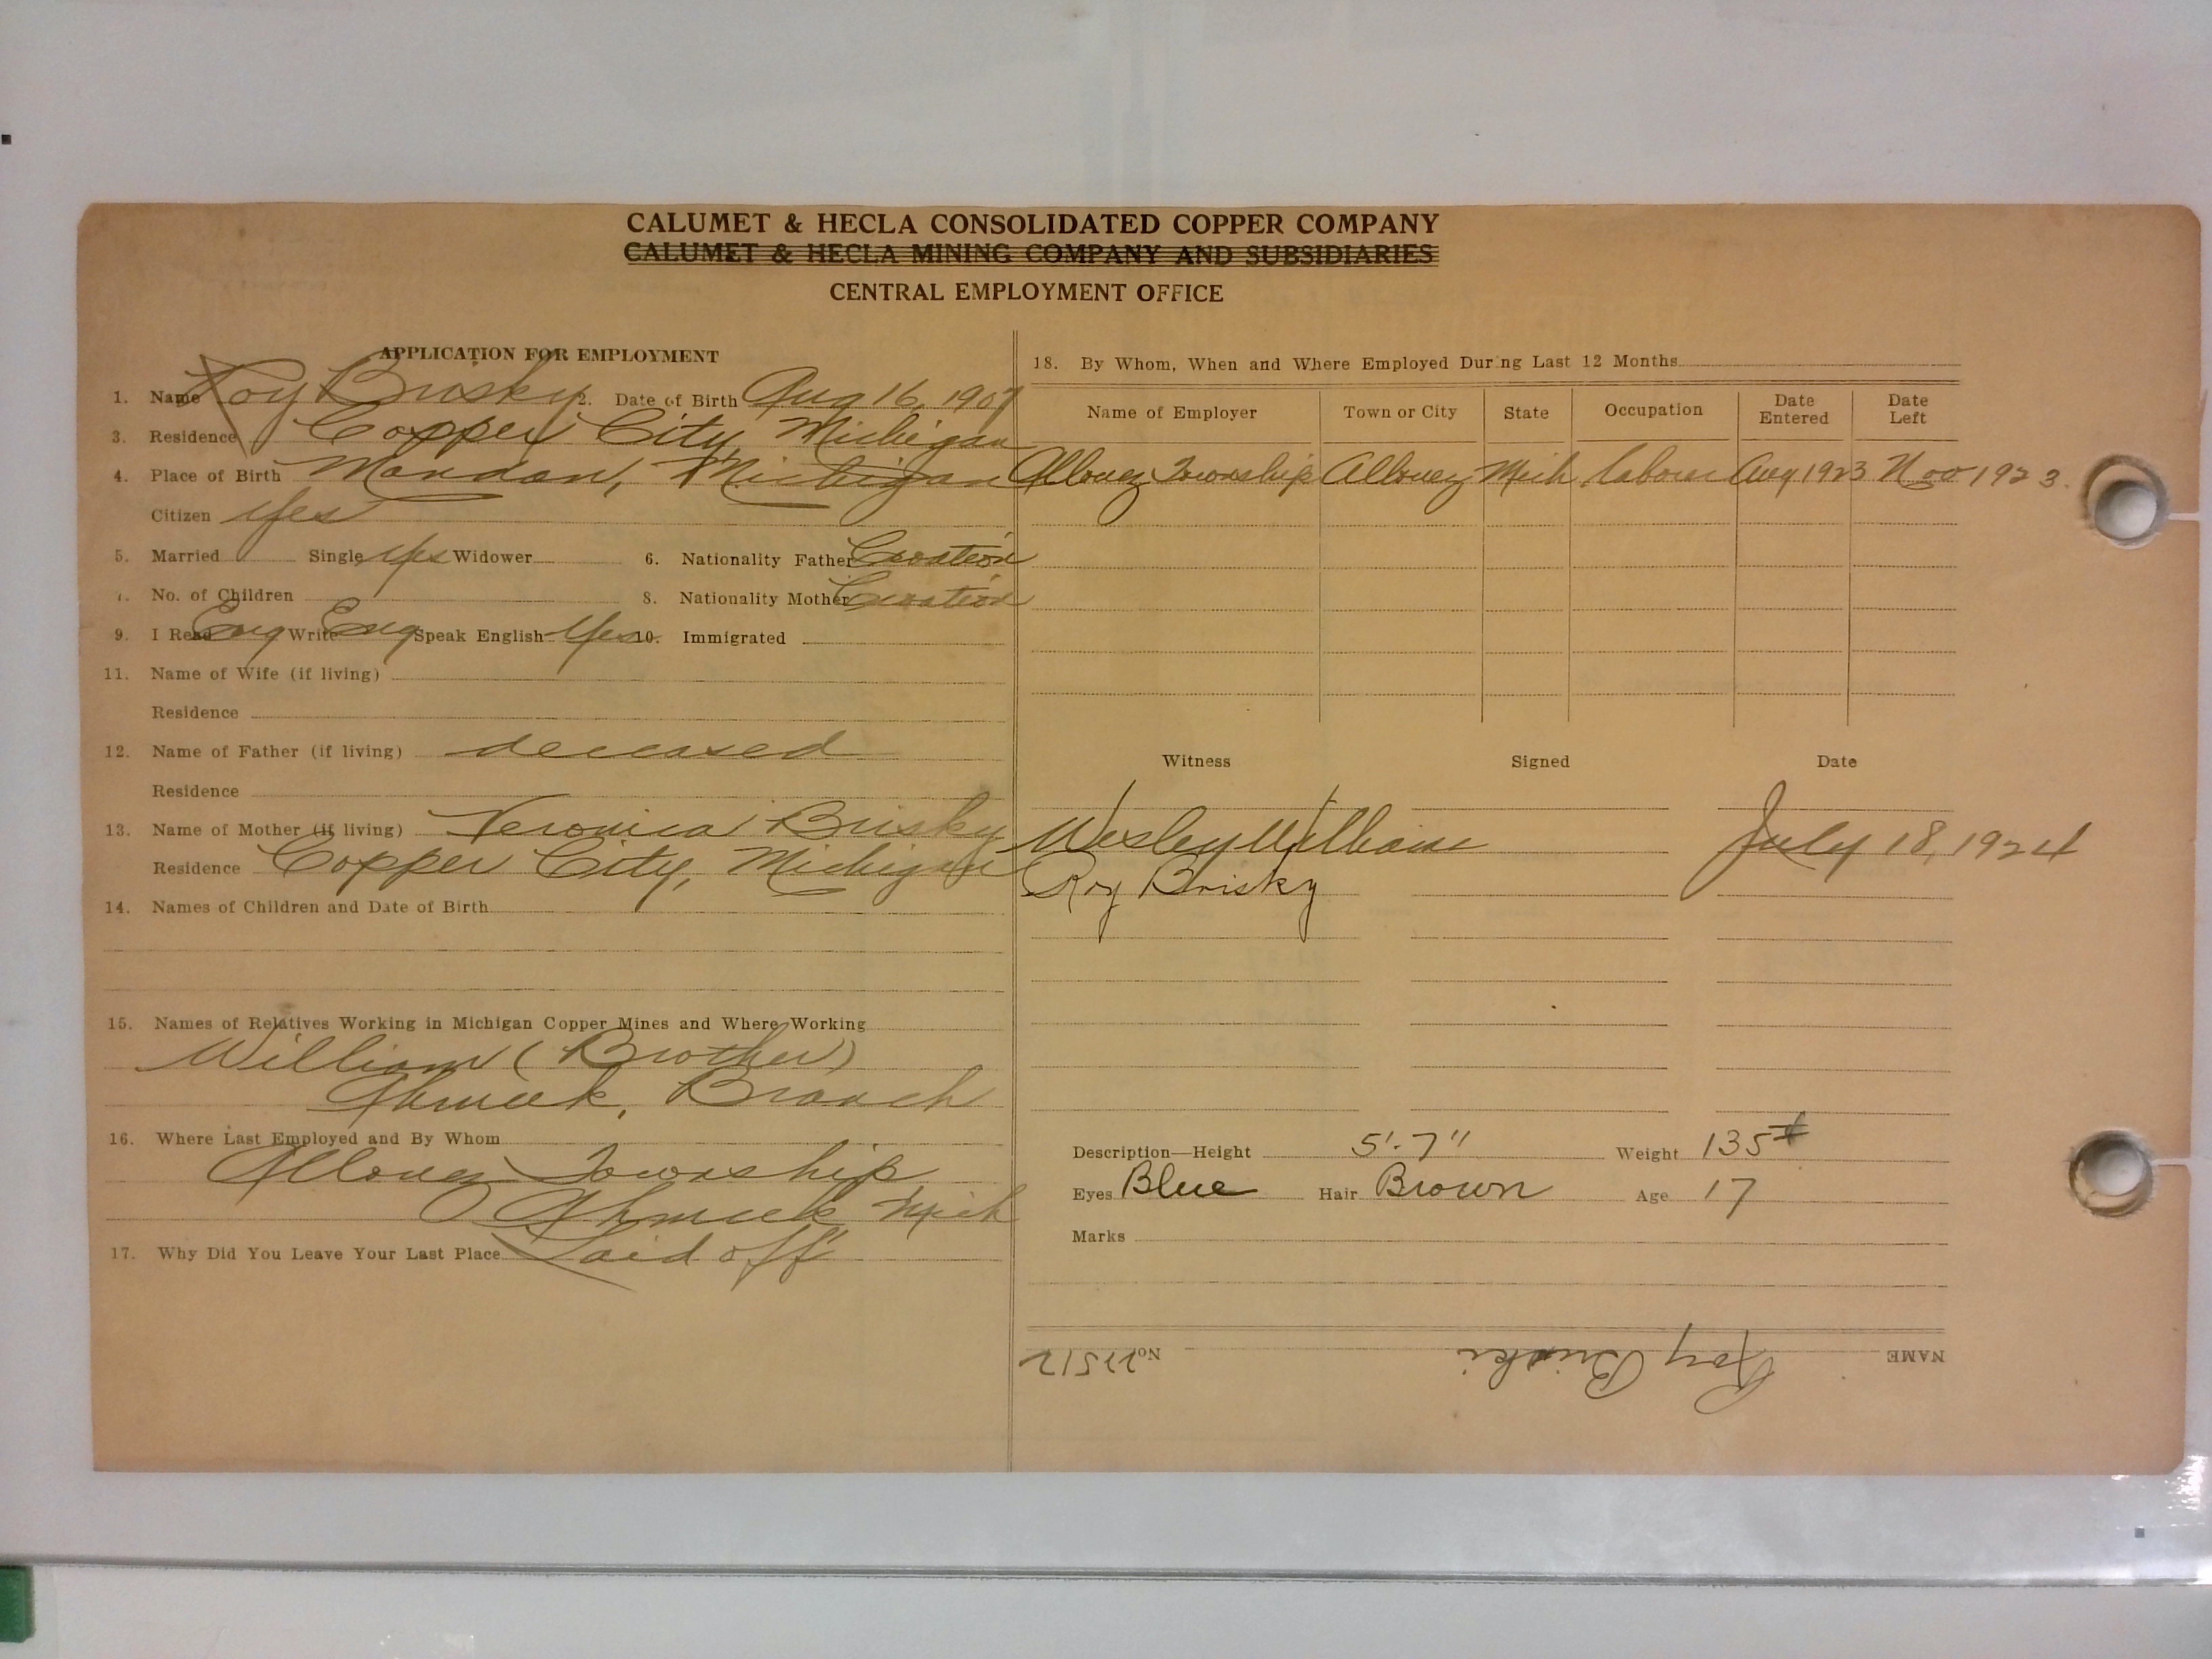 CALUMET & HECLA CONSOLIDATED COPPER COMPANY
CALUMET & HECLA MINING COMPANY AND SUBSIDIARIES
CENTRAL EMPLOYMENT OFFICE
APPLICATION FOR EMPLOYMENT
1. Name Roy Brisky 2. Date of Birth Aug 16, 1907
3. Residence Copper City, Michigan
4. Place of Birth Mandan, Michigan
Citizen Yes
5. Married Single Yes Widower 6. Nationality Father Croation
7. No. of Children 8. Nationality Mother Croation
9. I Read Eng Write Eng Speak English Yes 10. Immigrated
11. Name of Wife (if living)
Residence
12. Name of Father (if living) deceased
Residence
13. Name of Mother (if living) Veronica Brisky
Residence Copper City, Michigan
14. Names of Children and Date of Birth
15. Names of Relatives Working in Michigan Copper Mines and Where Working
William (Brother)
Ahmeek, Branch
16. Where Last Employed and By Whom
Allouez Township
Ahmeek Mich
17. Why Did You Leave Your Last Place Laid off
18. By Whom, When and Where Employed During Last 12 Months
Name of Employer Town or City State Occupation Date Entered Date Left
Allouez Township Allouez Mich labour Aug 1923 Nov 1923.
Witness Signed Date
Wesley Williams July 18, 1924
Roy Brisky
Description—Height 5'-7" Weight 135#
Eyes Blue Hair Brown Age 17
Marks
NAME Roy Briski No. 22512